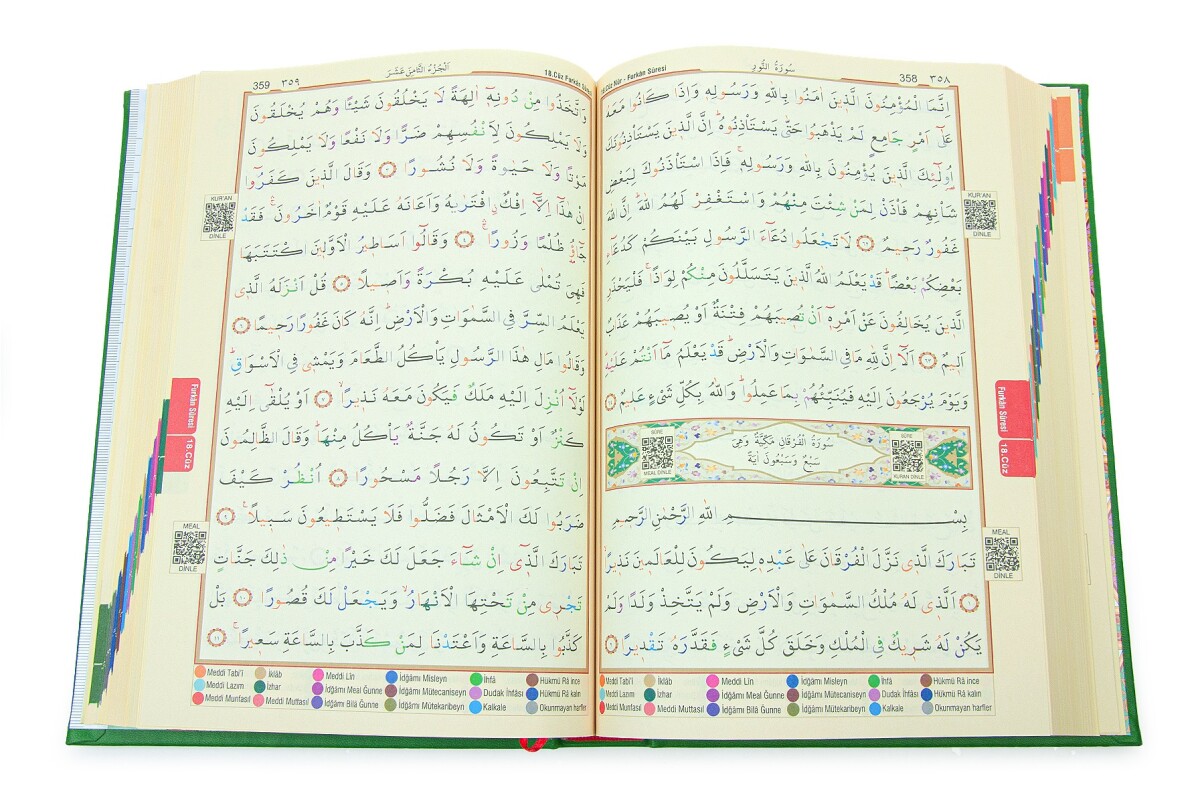 سُورَةُ النُّورِ
358 ٣٥٨
18.Cüz Nûr - Furkân Sûresi
اِنَّمَا الْمُؤْمِنُونَ الَّذ۪ينَ اٰمَنُوا بِاللّٰهِ وَرَسُولِه۪ وَاِذَا كَانُوا مَعَهُ
عَلٰٓى اَمْرٍ جَامِعٍ لَمْ يَذْهَبُوا حَتّٰى يَسْتَأْذِنُوهُۜ اِنَّ الَّذ۪ينَ يَسْتَأْذِنُونَكَ
اُو۬لٰٓئِكَ الَّذ۪ينَ يُؤْمِنُونَ بِاللّٰهِ وَرَسُولِه۪ۚ فَاِذَا اسْتَأْذَنُوكَ لِبَعْضِ
شَأْنِهِمْ فَأْذَنْ لِمَنْ شِئْتَ مِنْهُمْ وَاسْتَغْفِرْ لَهُمُ اللّٰهَۜ اِنَّ اللّٰهَ
غَفُورٌ رَح۪يمٌ ﴿٦٢﴾ لَا تَجْعَلُوا دُعَٓاءَ الرَّسُولِ بَيْنَكُمْ كَدُعَٓاءِ
بَعْضِكُمْ بَعْضًاۜ قَدْ يَعْلَمُ اللّٰهُ الَّذ۪ينَ يَتَسَلَّلُونَ مِنْكُمْ لِوَاذًاۚ فَلْيَحْذَرِ
الَّذ۪ينَ يُخَالِفُونَ عَنْ اَمْرِه۪ٓ اَنْ تُص۪يبَهُمْ فِتْنَةٌ اَوْ يُص۪يبَهُمْ عَذَابٌ
اَل۪يمٌ ﴿٦٣﴾ اَلَٓا اِنَّ لِلّٰهِ مَا فِي السَّمٰوَاتِ وَالْاَرْضِۜ قَدْ يَعْلَمُ مَٓا اَنْتُمْ عَلَيْهِۜ
وَيَوْمَ يُرْجَعُونَ اِلَيْهِ فَيُنَبِّئُهُمْ بِمَا عَمِلُواۜ وَاللّٰهُ بِكُلِّ شَيْءٍ عَل۪يمٌ
سُورَةُ الْفُرْقَانِ مَكِّيَّةٌ وَهِيَ
سَبْعٌ وَسَبْعُونَ اٰيَةً
SÛRE
MEAL DİNLE
SÛRE
KUR'AN DİNLE
بِسْمِ اللّٰهِ الرَّحْمٰنِ الرَّح۪يمِ
تَبَارَكَ الَّذ۪ي نَزَّلَ الْفُرْقَانَ عَلٰى عَبْدِه۪ لِيَكُونَ لِلْعَالَم۪ينَ نَذ۪يرًا
﴿١﴾ اَلَّذ۪ي لَهُ مُلْكُ السَّمٰوَاتِ وَالْاَرْضِ وَلَمْ يَتَّخِذْ وَلَدًا وَلَمْ
يَكُنْ لَهُ شَر۪يكٌ فِي الْمُلْكِ وَخَلَقَ كُلَّ شَيْءٍ فَقَدَّرَهُ تَقْد۪يرًا
KUR'AN
DİNLE
Furkân Sûresi
18.Cüz
MEAL
DİNLE
Meddi Tabî'î İklâb Meddi Lîn İdğâmı Misleyn İhfâ Hükmü Râ ince
Meddi Lazım İzhar İdğâmı Meal Ğunne İdğâmı Mütecaniseyn Dudak İhfâsı Hükmü Râ kalın
Meddi Munfasıl Meddi Muttasıl İdğâmı Bilâ Ğunne İdğâmı Mütekaribeyn Kalkale Okunmayan harfler
اَلْجُزْءُ الثَّامِنَ عَشَرَ
359 ٣٥٩
18.Cüz Furkân Sûresi
وَاتَّخَذُوا مِنْ دُونِه۪ٓ اٰلِهَةً لَا يَخْلُقُونَ شَيْـًٔا وَهُمْ يُخْلَقُونَ
وَلَا يَمْلِكُونَ لِاَنْفُسِهِمْ ضَرًّا وَلَا نَفْعًا وَلَا يَمْلِكُونَ
مَوْتًا وَلَا حَيٰوةً وَلَا نُشُورًا ﴿٣﴾ وَقَالَ الَّذ۪ينَ كَفَرُٓوا
اِنْ هٰذَٓا اِلَّٓا اِفْكٌۨ افْتَرٰيهُ وَاَعَانَهُ عَلَيْهِ قَوْمٌ اٰخَرُونَۚ فَقَدْ
جَٓاؤُ۫ ظُلْمًا وَزُورًاۚ ﴿٤﴾ وَقَالُٓوا اَسَاط۪يرُ الْاَوَّل۪ينَ اكْتَتَبَهَا
فَهِيَ تُمْلٰى عَلَيْهِ بُكْرَةً وَاَص۪يلًا ﴿٥﴾ قُلْ اَنْزَلَهُ الَّذ۪ي
يَعْلَمُ السِّرَّ فِي السَّمٰوَاتِ وَالْاَرْضِۜ اِنَّهُ كَانَ غَفُورًا رَح۪يمًا ﴿٦﴾
وَقَالُوا مَالِ هٰذَا الرَّسُولِ يَأْكُلُ الطَّعَامَ وَيَمْش۪ي فِي الْاَسْوَاقِۜ
لَوْلَٓا اُنْزِلَ اِلَيْهِ مَلَكٌ فَيَكُونَ مَعَهُ نَذ۪يرًاۙ ﴿٧﴾ اَوْ يُلْقٰٓى اِلَيْهِ
كَنْزٌ اَوْ تَكُونُ لَهُ جَنَّةٌ يَأْكُلُ مِنْهَاۜ وَقَالَ الظَّالِمُونَ
اِنْ تَتَّبِعُونَ اِلَّا رَجُلًا مَسْحُورًا ﴿٨﴾ اُنْظُرْ كَيْفَ
ضَرَبُوا لَكَ الْاَمْثَالَ فَضَلُّوا فَلَا يَسْتَط۪يعُونَ سَب۪يلًا۟ ﴿٩﴾
تَبَارَكَ الَّذ۪ٓي اِنْ شَٓاءَ جَعَلَ لَكَ خَيْرًا مِنْ ذٰلِكَ جَنَّاتٍ
تَجْر۪ي مِنْ تَحْتِهَا الْاَنْهَارُۙ وَيَجْعَلْ لَكَ قُصُورًا ﴿١٠﴾ بَلْ
كَذَّبُوا بِالسَّاعَةِ وَاَعْتَدْنَا لِمَنْ كَذَّبَ بِالسَّاعَةِ سَع۪يرًاۚ ﴿١١﴾
KUR'AN
DİNLE
Furkân Sûresi
18.Cüz
MEAL
DİNLE
Meddi Tabî'î İklâb Meddi Lîn İdğâmı Misleyn İhfâ Hükmü Râ ince
Meddi Lazım İzhar İdğâmı Meal Ğunne İdğâmı Mütecaniseyn Dudak İhfâsı Hükmü Râ kalın
Meddi Munfasıl Meddi Muttasıl İdğâmı Bilâ Ğunne İdğâmı Mütekaribeyn Kalkale Okunmayan harfler